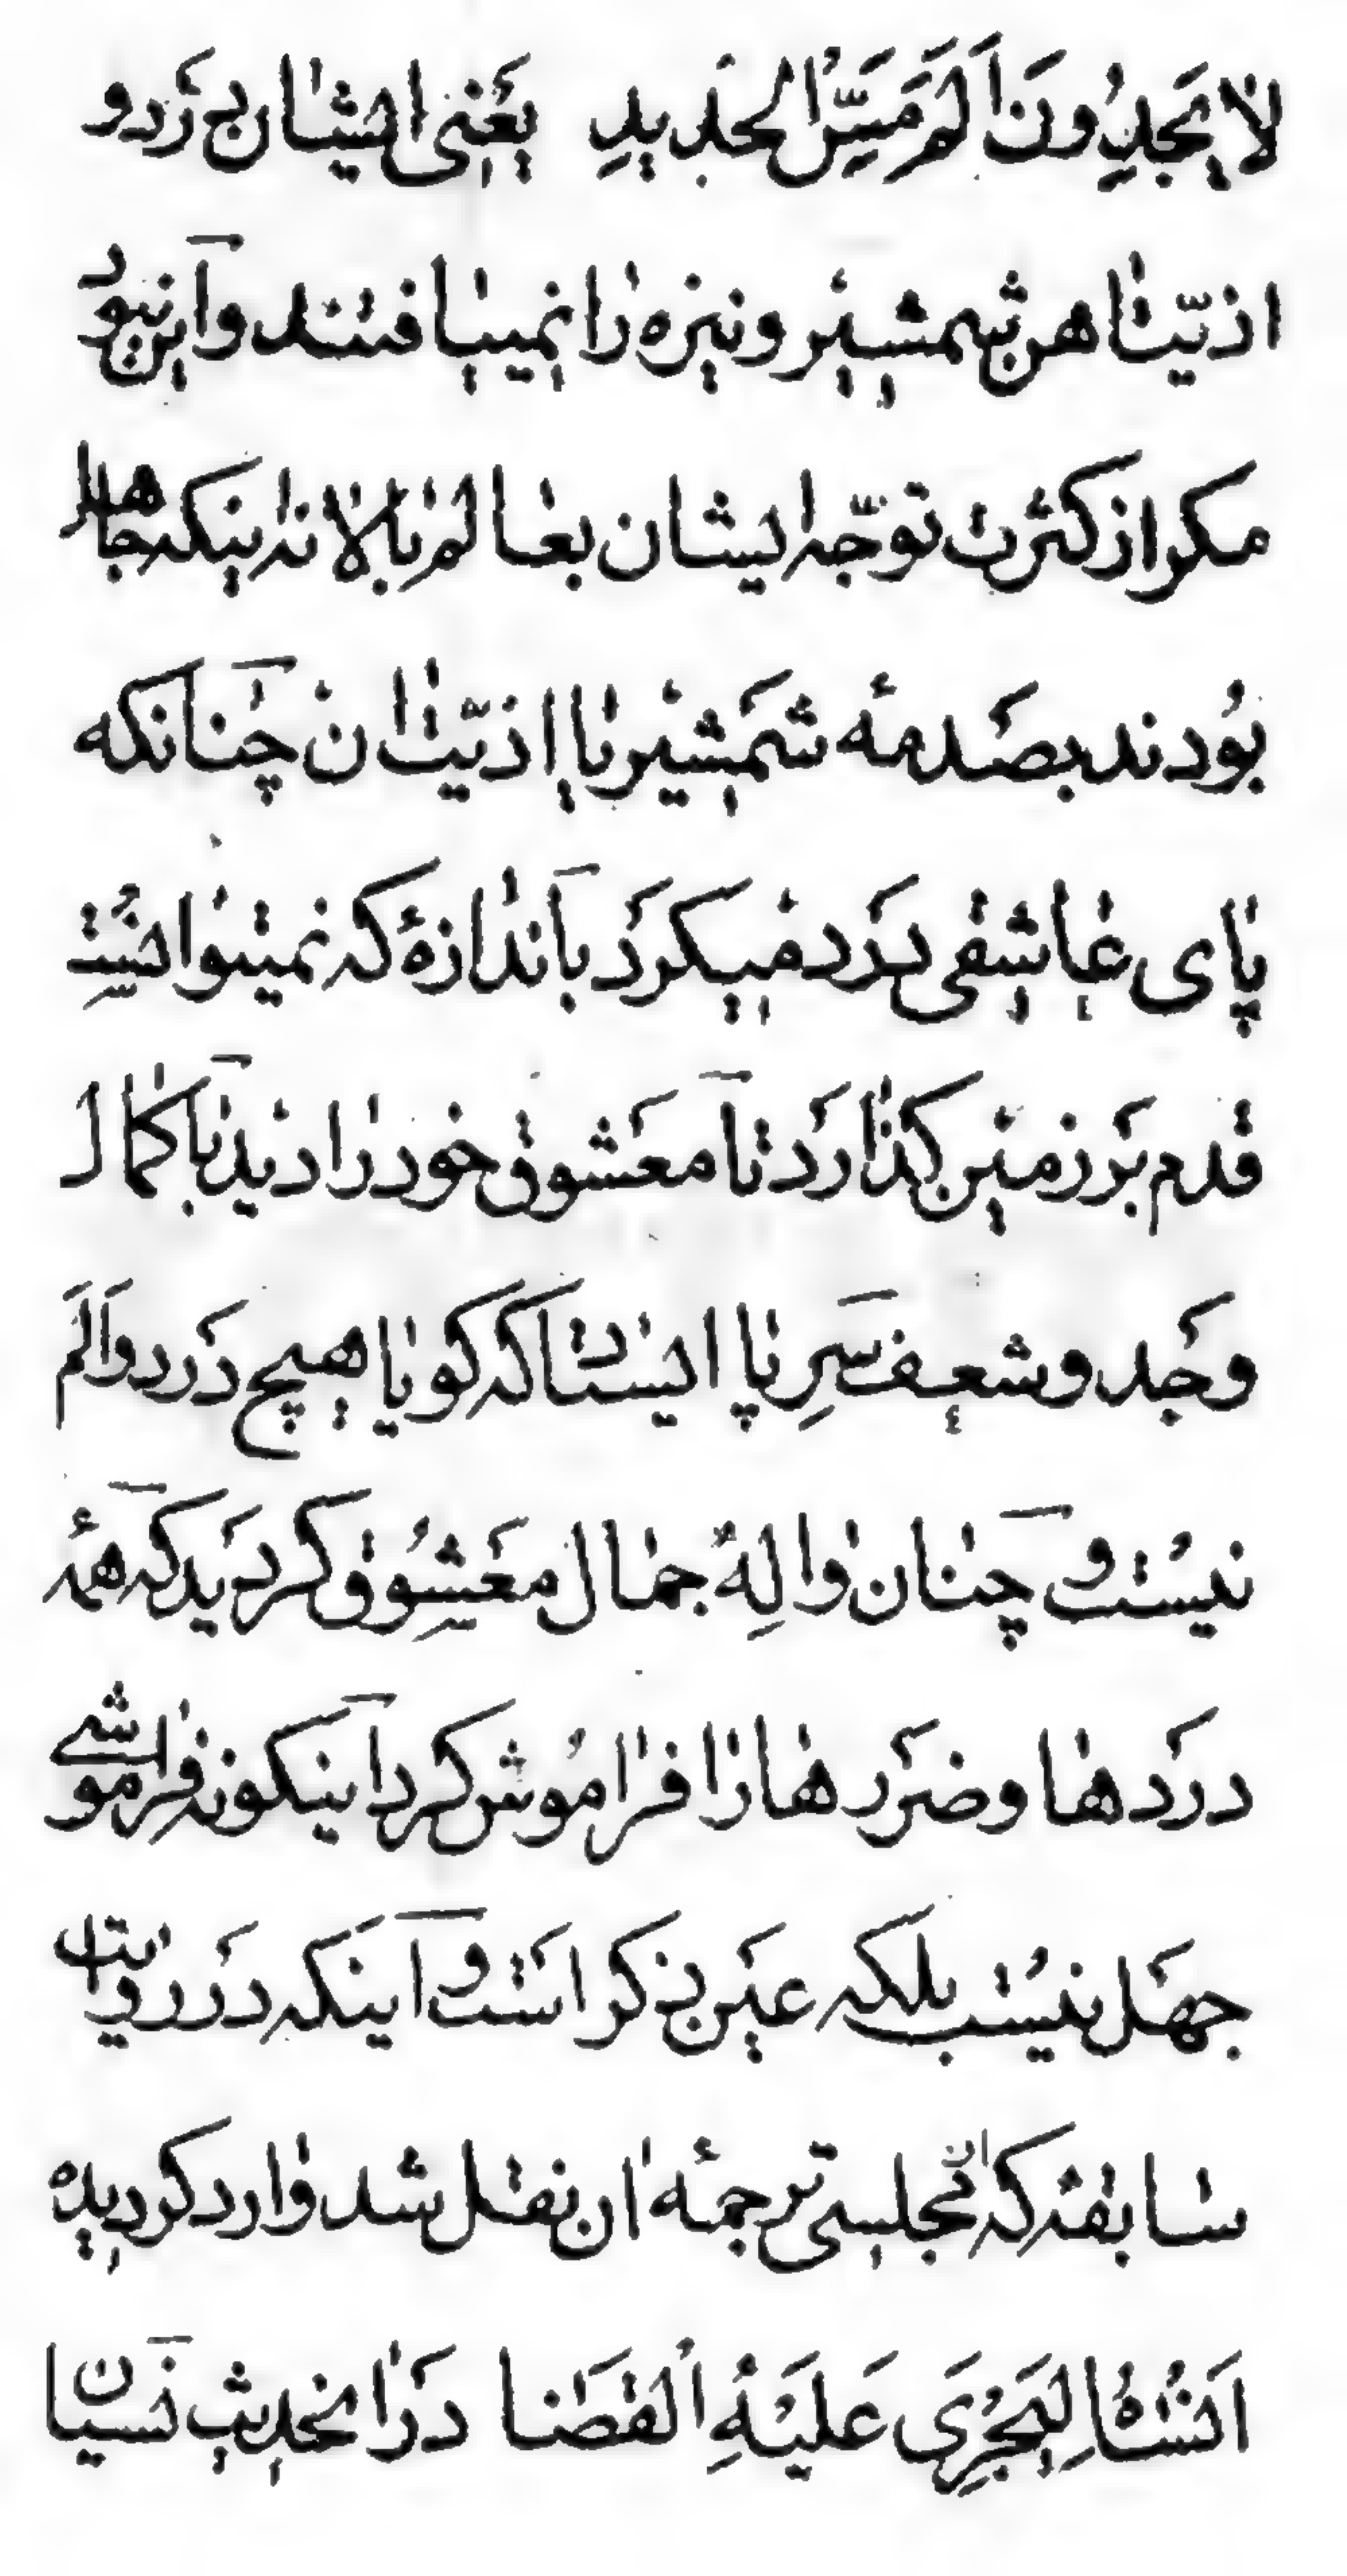 لا يَجِدُونَ اَلَمَ مَسِّ الْحَدِيدِ يَعْنِى ايشان دَرد و
اذيّت اهن شمشير و نيزه را نمييافتند و اين نبود
مكر از كثرت توجّه ايشان بعالم بالا نه اينكه جاهل
بُودند بصدمهٔ شمشير يا اذيّت ان چنانكه
پاى عاشقى درد ميكرد باندازهٔ كه نميتوانست
قدم بر زمين كذارد تا معشوق خود را ديد با كمال
وجد و شعف سرِ پا ايستاد كه كويا هيچ درد و اَلَم
نيست و چنان والِهٔ جمال معشُوق كرديد كه همهٔ
دردها و ضررها را فرامُوش كرد اينكونه فراموشى
جهل نيست بلكه عين ذكر است و اينكه در روايت
سابقه كه از مجلسى ترجمهٔ ان نقل شد وارد كرديده
اَنْسٰاهُ لِيَجْرِىَ عَلَيْهِ الْقَضٰا در اين حديث نسيان